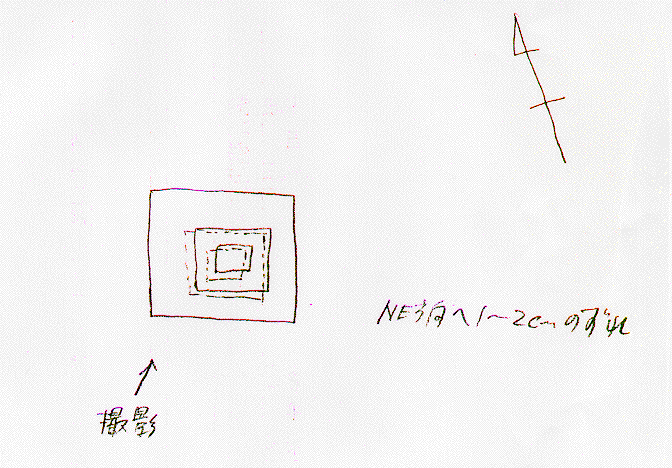 NE方向へ1〜2cmのずれ
撮影